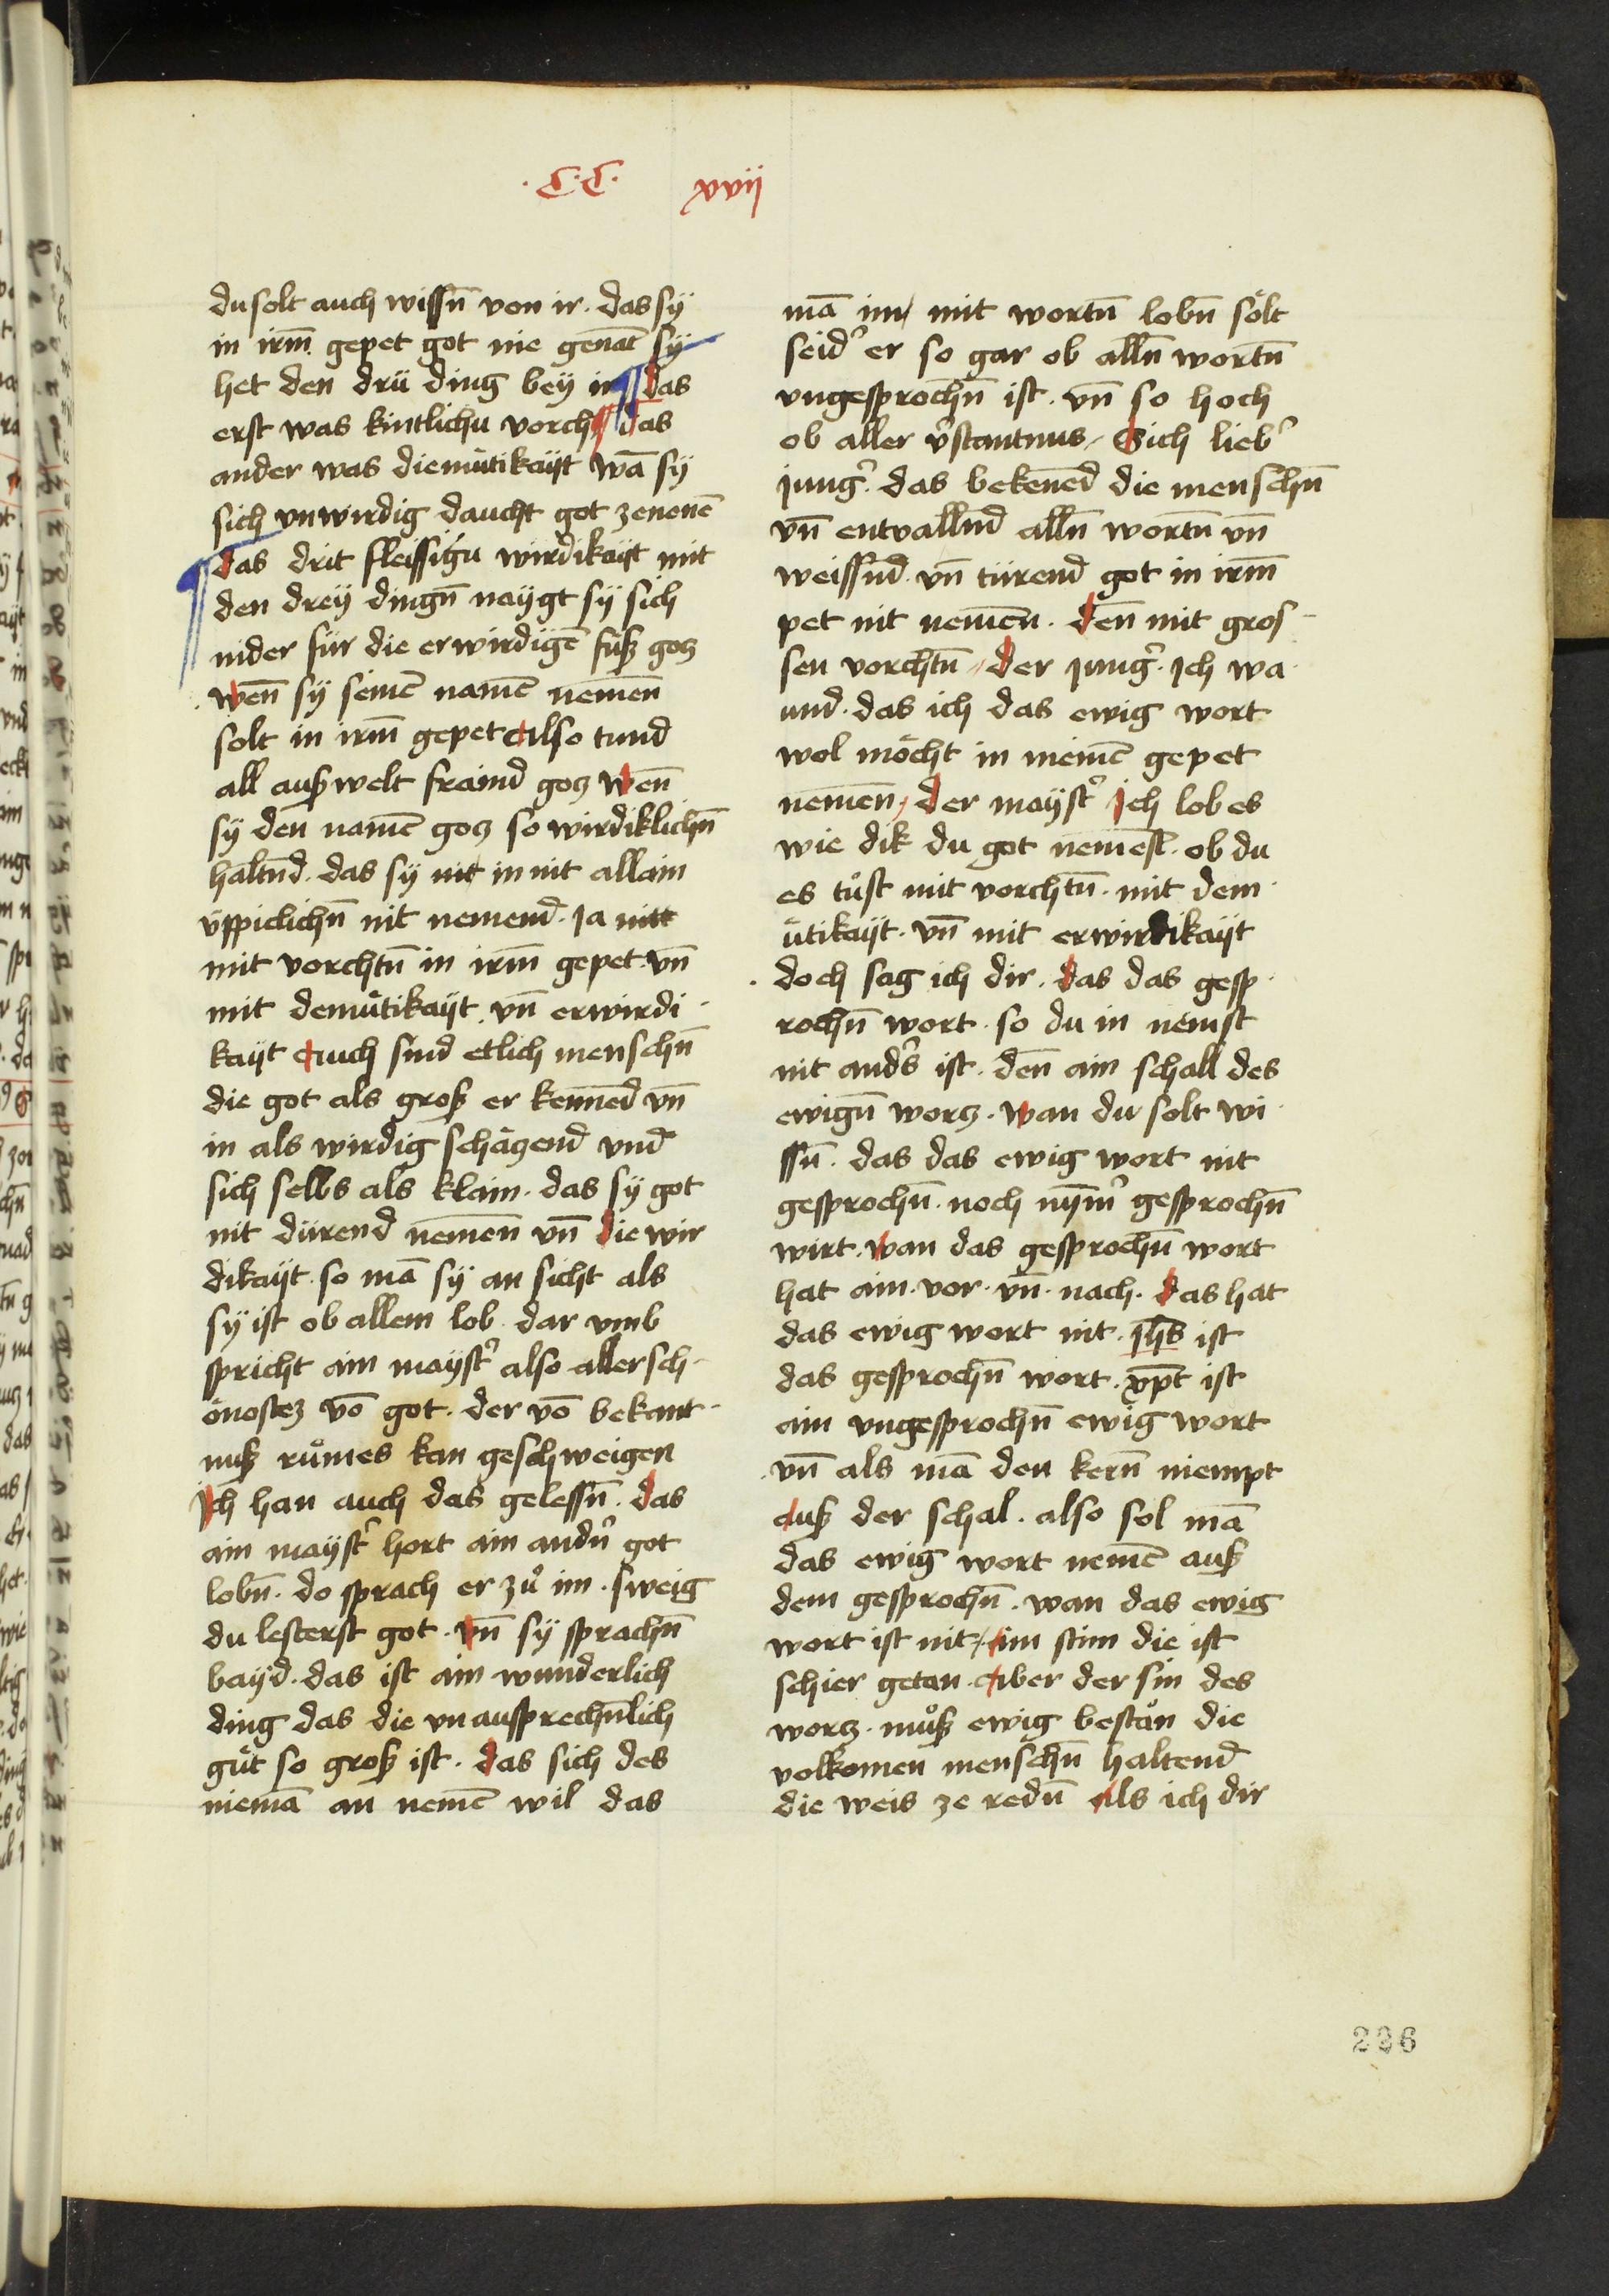 ·C·C· xvij
du solt auch wissn̄ von ir · das sÿ
in irm̄ gepet got nie genāt sÿ
het den drü ding beÿ ir ¶ das
erst was kintlichu vorcht ¶ das
ander was diemütikaÿt wā sÿ
sich vnwirdig daucht got zenenē
¶ das drit fleissigu wirdikaÿt mit
den dreÿ dingn̄ naÿgt sÿ sich
nider für die erwirdigē fuͤß gotz
wen̄ sÿ seinē namē nemen̄
solt in irm̄ gepet Also tund
all auß welt fraind gotz wen̄
sÿ den namē gotz so wirdiklichn̄
haltnd · das sÿ nit in nit allain
üppiclichn̄ nit nemend · Ja nitt
mit vorchtn̄ in irm̄ gepet · vn̄
mit demuͤtikaÿt · vn̄ erwirdi ·
kaÿt Auch sind etlich menschn̄
die got als groß er kennēd vn̄
in als wirdig schätzend vnd
sich selbs als klain · das sÿ got
nit dürend nemen̄ vn̄ die wir
dikaÿt · so mā sÿ an sicht als
sÿ ist ob allem lob · dar vmb
spricht ain maÿstˀ also aller sch ·
önostez vō got · der vō bekant ·
nuß ruͤmes kan geschweigen
Ich han auch das gelessn̄ · das
ain maÿstˀ hort ain andnˀ got
lobn̄ · do sprach er zuͦ im · sweig
du lesterst got · vn̄ sÿ sprachn̄
baÿd · das ist ain wunderlich
ding das die vnausprechn̄lich
guͤt so groß ist · das sich des
niemā an nemē wil das
mā im mit wortn̄ lobn̄ sölt
seidˀ er so gar ob alln̄ wortn̄
vngesprochn̄ ist · vn̄ so hoch
ob aller vˀstantnus · Sich liebˀ
jungˀ · das bekenēd die menschn̄
vn̄ entvallnd alln̄ wortn̄ vn̄
weissnd · vn̄ türend got in irm̄
pet nit nemēn · den̄ mit gros ·
sen vorchtn̄ · der jungˀ · Ich wa ·
und · das ich das ewig wort
wol möcht in meinē gepet
nemen̄ · der maÿstˀ Ich lob es
wie dik du got nemest · ob du
es tuͦst mit vorchtn̄ · mit dem ·
uͤtikaÿt · vn̄ mit erwirdikaÿt
doch sag ich dir · das das gesp ·
rochn̄ wort · so du in nemst
nit andˀs ist · den̄ ain schall des
ewign̄ wortz · wan du solt wi ·
ssn̄ · das das ewig wort nit
gesprochn̄ · noch nÿmˀ gesprochn̄
wirt · wan das gesprochn̄ wort
hat ain · vor · vn̄ · nach · das hat
das ewig wort nit · ihs̄ ist
das gesprochn̄ wort · xp̄t ist
ain vngesprochn̄ ewig wort
vn̄ als mā den kern̄ niempt
auß der schal · also sol mā
das ewig wort nemē auß
dem gesprochn̄ · wan das ewig
wort ist nit · ain stim die ist
schier getan · Aber der sin̄ des
wortz · muͦß ewig bestän die
volkomen menschn̄ haltend
die weis ze redn̄ als ich dir
236